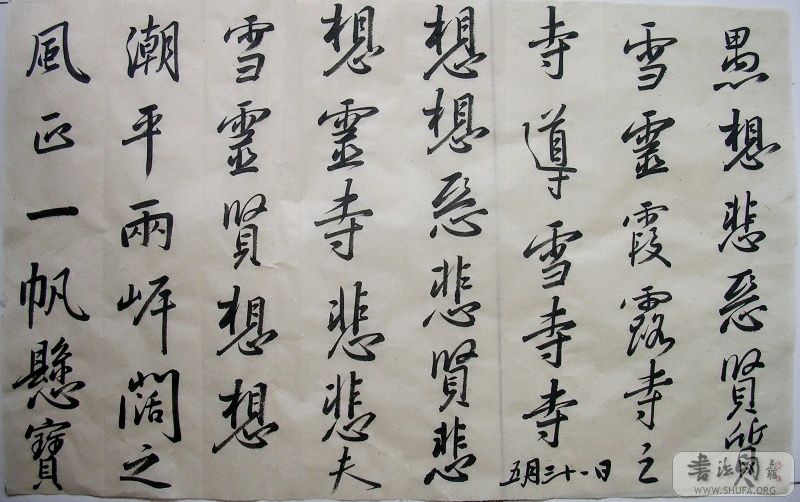 愚想悲惡賢質
雪靈霞露寺之
寺導雪寺寺寺
五月三十一日
想想惡悲賢悲
想靈寺悲悲夫
雪靈賢想想
潮平兩岸闊之
風正一帆懸寶
書法網
WWW.SHUFA.ORG